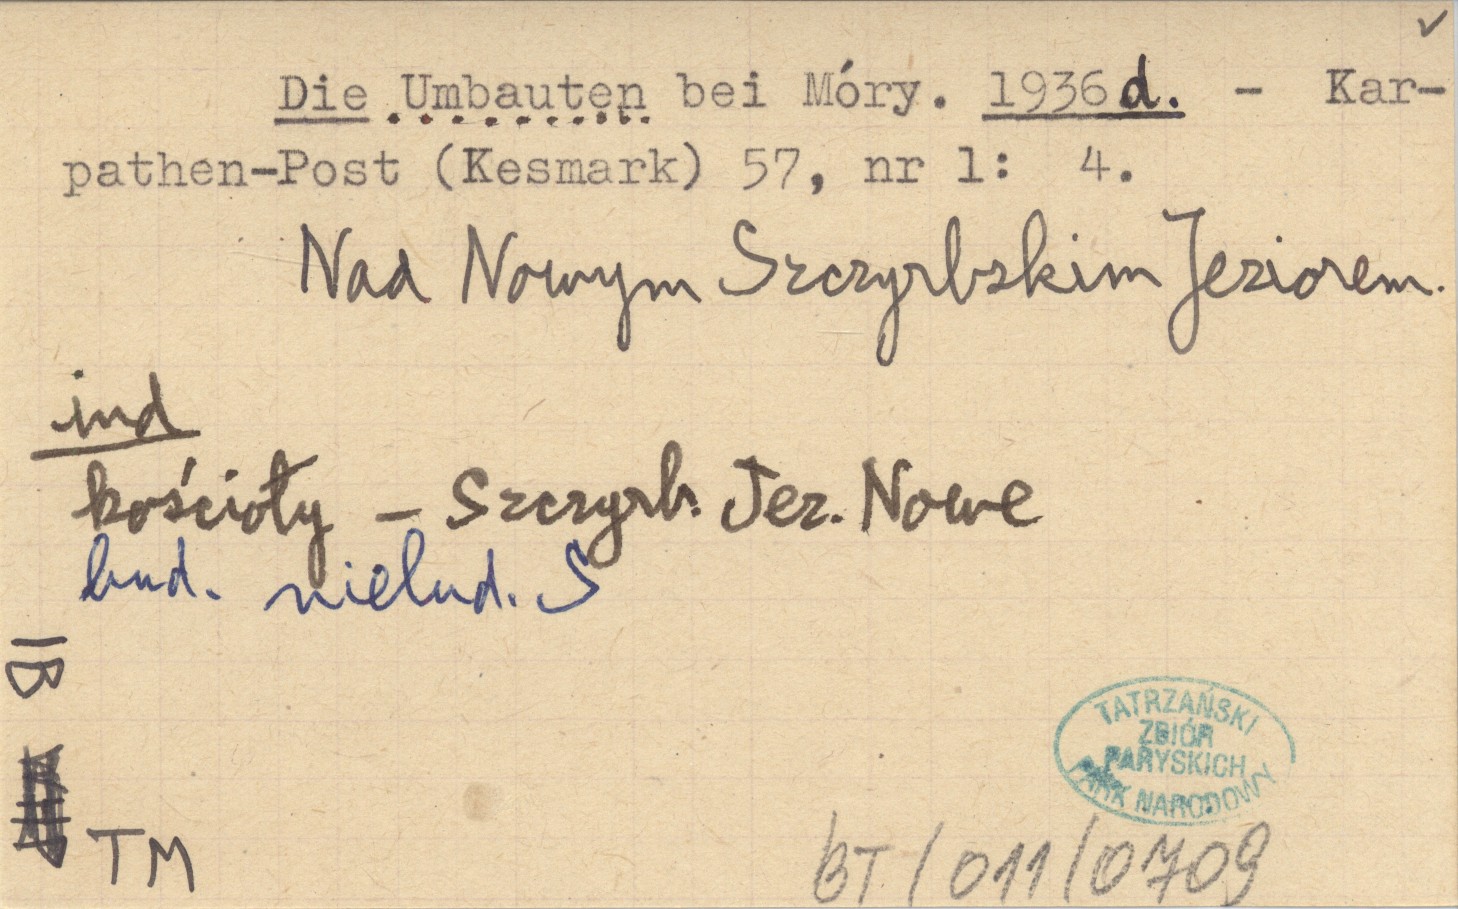 ✓
Die Umbauten bei Móry. 1936d. - Kar-
pathen-Post (Kesmark) 57, nr 1: 4.
Nad Nowym Szczyrbskim Jeziorem.
ind
kościoły – Szczyrb. Jez. Nowe
bud. nielud. S
B
TM
TATRZAŃSKI
ZBIÓR
PARYSKICH
PARK NARODOWY
BT/011/0709